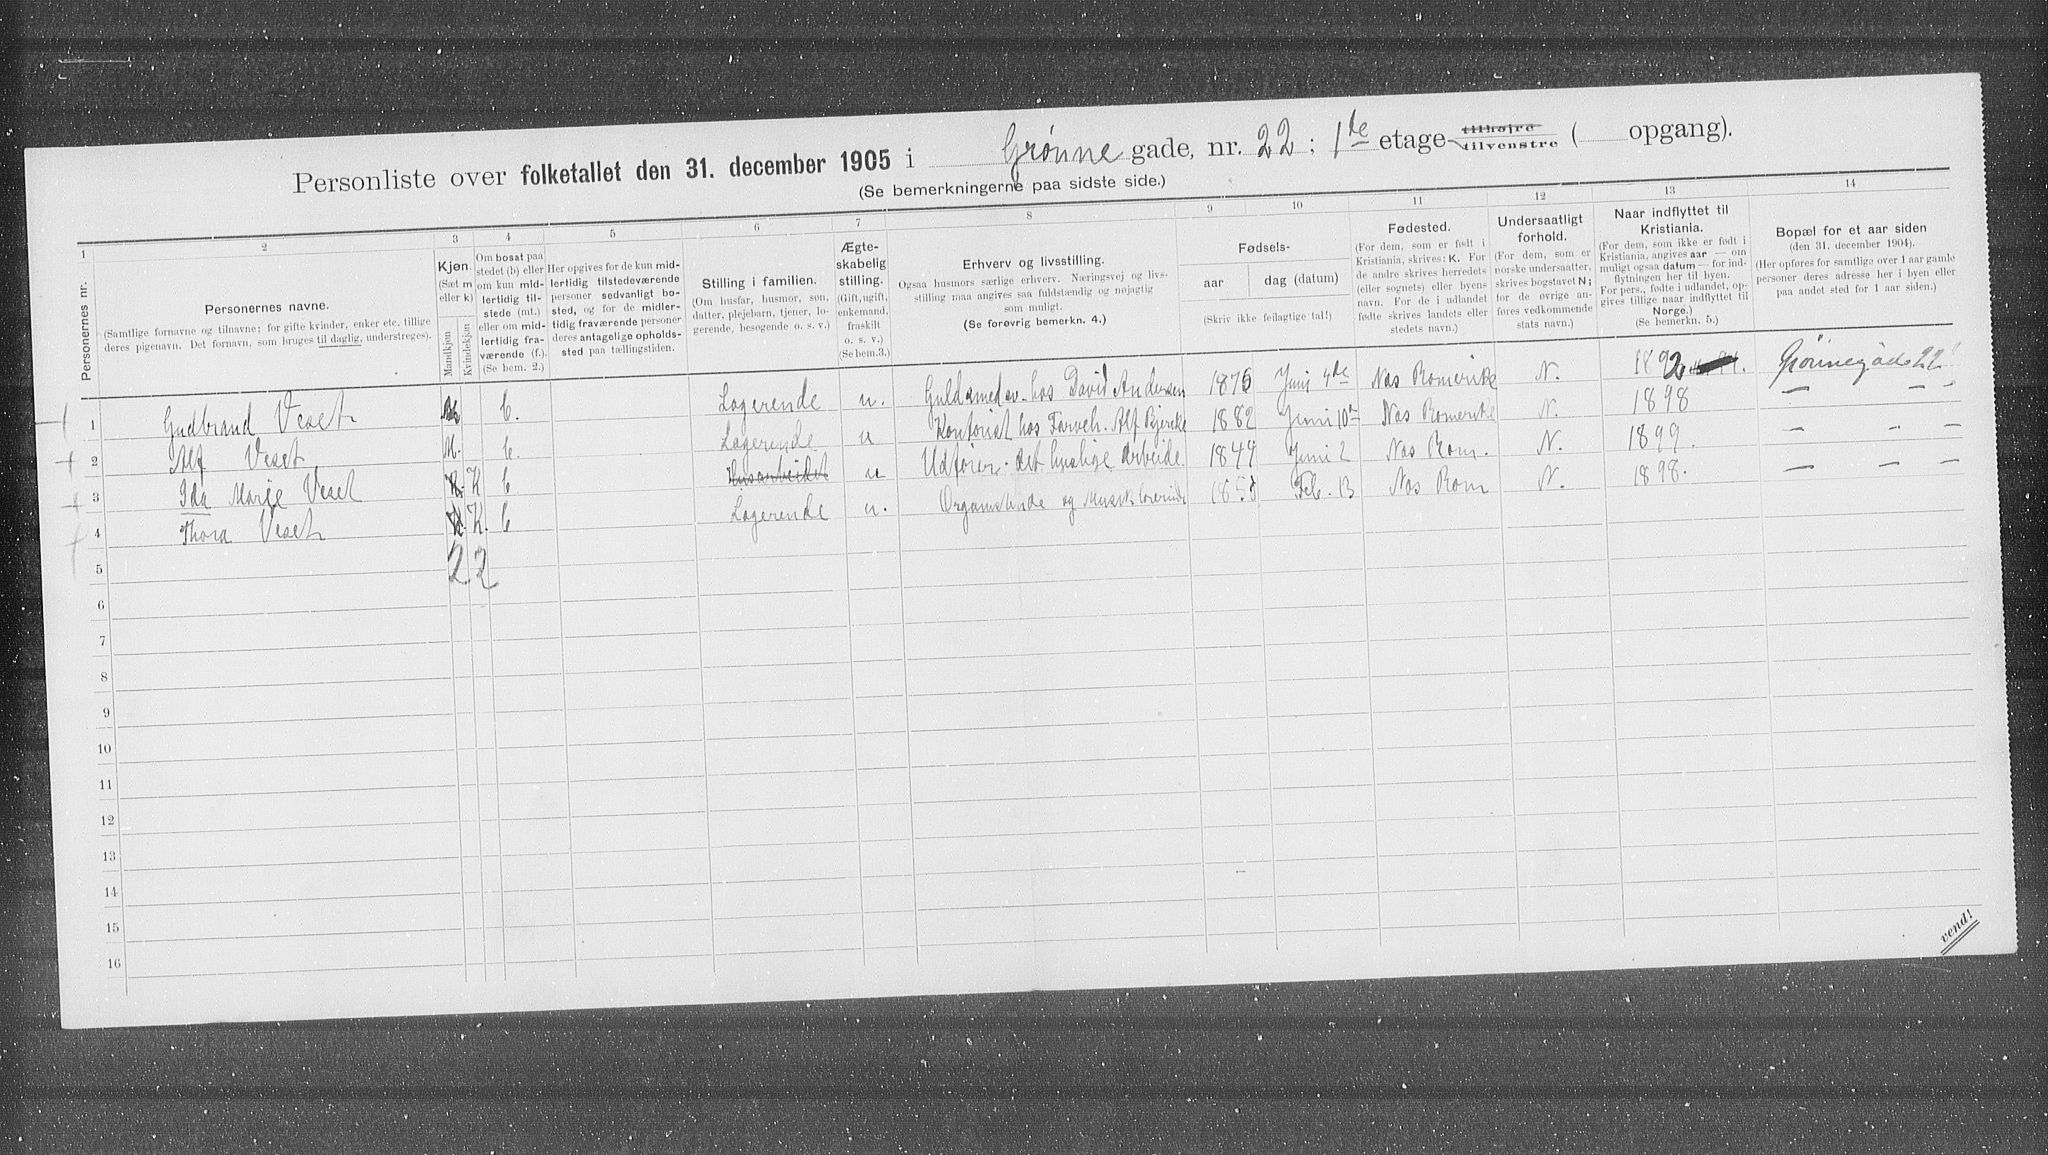 Personliste over folketallet den 31. december 1905 i Grønne gade, nr. 22 ; 1ste etage tilhøjre tilvenstre ( opgang).
(Se bemerkningerne paa sidste side.)
1 2 3 4 5 6 7 8 9 10 11 12 13 14
Personernes nr.
Personernes navne.
(Samtlige fornavne og tilnavne; for gifte kvinder, enker etc. tillige
deres pigenavn. Det fornavn, som bruges til daglig, understreges).
Kjøn.
(Sæt m
eller k)
Mandkjøn
Kvindekjøn
Om bosat paa
stedet (b) eller
om kun mid-
lertidig til-
stede (mt.)
eller om mid-
lertidig fra-
værende (f.)
(Se bem. 2.)
Her opgives for de kun mid-
lertidig tilstedeværende
personer sedvanlig bo-
sted, og for de midler-
tidig fraværende personer
deres antagelige opholds-
sted paa tællingstiden.
Stilling i familien.
(Om husfar, husmor, søn,
datter, plejebarn, tjener, lo-
gerende, besøgende o. s. v.)
Ægte-
skabelig
stilling.
(Gift, ugift,
enkemand,
fraskilt
o. s. v.)
(Se bem.3.)
Erhverv og livsstilling.
Ogsaa husmors særlige erhverv. Næringsvej og livs-
stilling maa angives saa fuldstændig og nøjagtig
som muligt.
(Se forøvrig bemerkn. 4.)
Fødsels-
aar
dag (datum)
(Skriv ikke feilagtige tal!)
Fødested.
(For dem, som er født i
Kristiania, skrives: K. For
de andre skrives herredets
(eller sognets) eller byens
navn. For de i udlandet
fødte skrives landets eller
stedets navn.)
Undersaatligt
forhold.
(For dem, som er
norske undersaatter,
skrives bogstavet N;
for de øvrige an-
føres vedkommende
stats navn.)
Naar indflyttet til
Kristiania.
(For dem, som ikke er født i
Kristiania, angives aar — om
muligt ogsaa datum — for ind-
flytningen her til byen.
For pers., fødte i udlandet, op-
gives tillige naar indflyttet til
Norge.)
(Se bemerkn. 5.)
Bopæl for et aar siden
(den 31. december 1904).
(Her opføres for samtlige over 1 aar gamle
personer deres adresse her i byen eller
paa andet sted for 1 aar siden.)
1 Gudbrand Veset M b. Logerende u. Guldsmedsv. hos David Andersen 1876 Juni 4de Nas Romerike N. 1892 Grønnegade 22
2 Alf Veset M. b. Logerende u Kontorist hos Farveh. Alf Bjercke 1882 Juni 10de Nas Romerike N. 1898 — — —
3 Ida Marie Veset K b Husarbeidet u Udfører det huslige arbeide 1844 Juni 2 Nas Rom. N. 1899. — — —
4 Thora Veset K. b Logerende u. Organistinde og Musiklærerinde Feb. 13 Nas Rom N. 1898. — — —
5 2 2
6
7
8
9
10
11
12
13
14
15
16
vend!